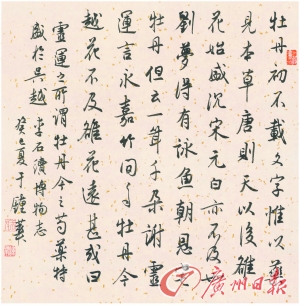 牡丹初不載文字惟以藥
見本草唐則天以後雒
花始盛沉宋元白亦不及
劉夢得有詠魚朝恩宅
牡丹但云一叢千朵謝靈
運言永嘉竹間多牡丹今
越花不及雒花遠甚或曰
靈運之所謂牡丹今之芍藥特
盛於吳越 李石續博物志
癸巳夏于鍾華
廣州日報